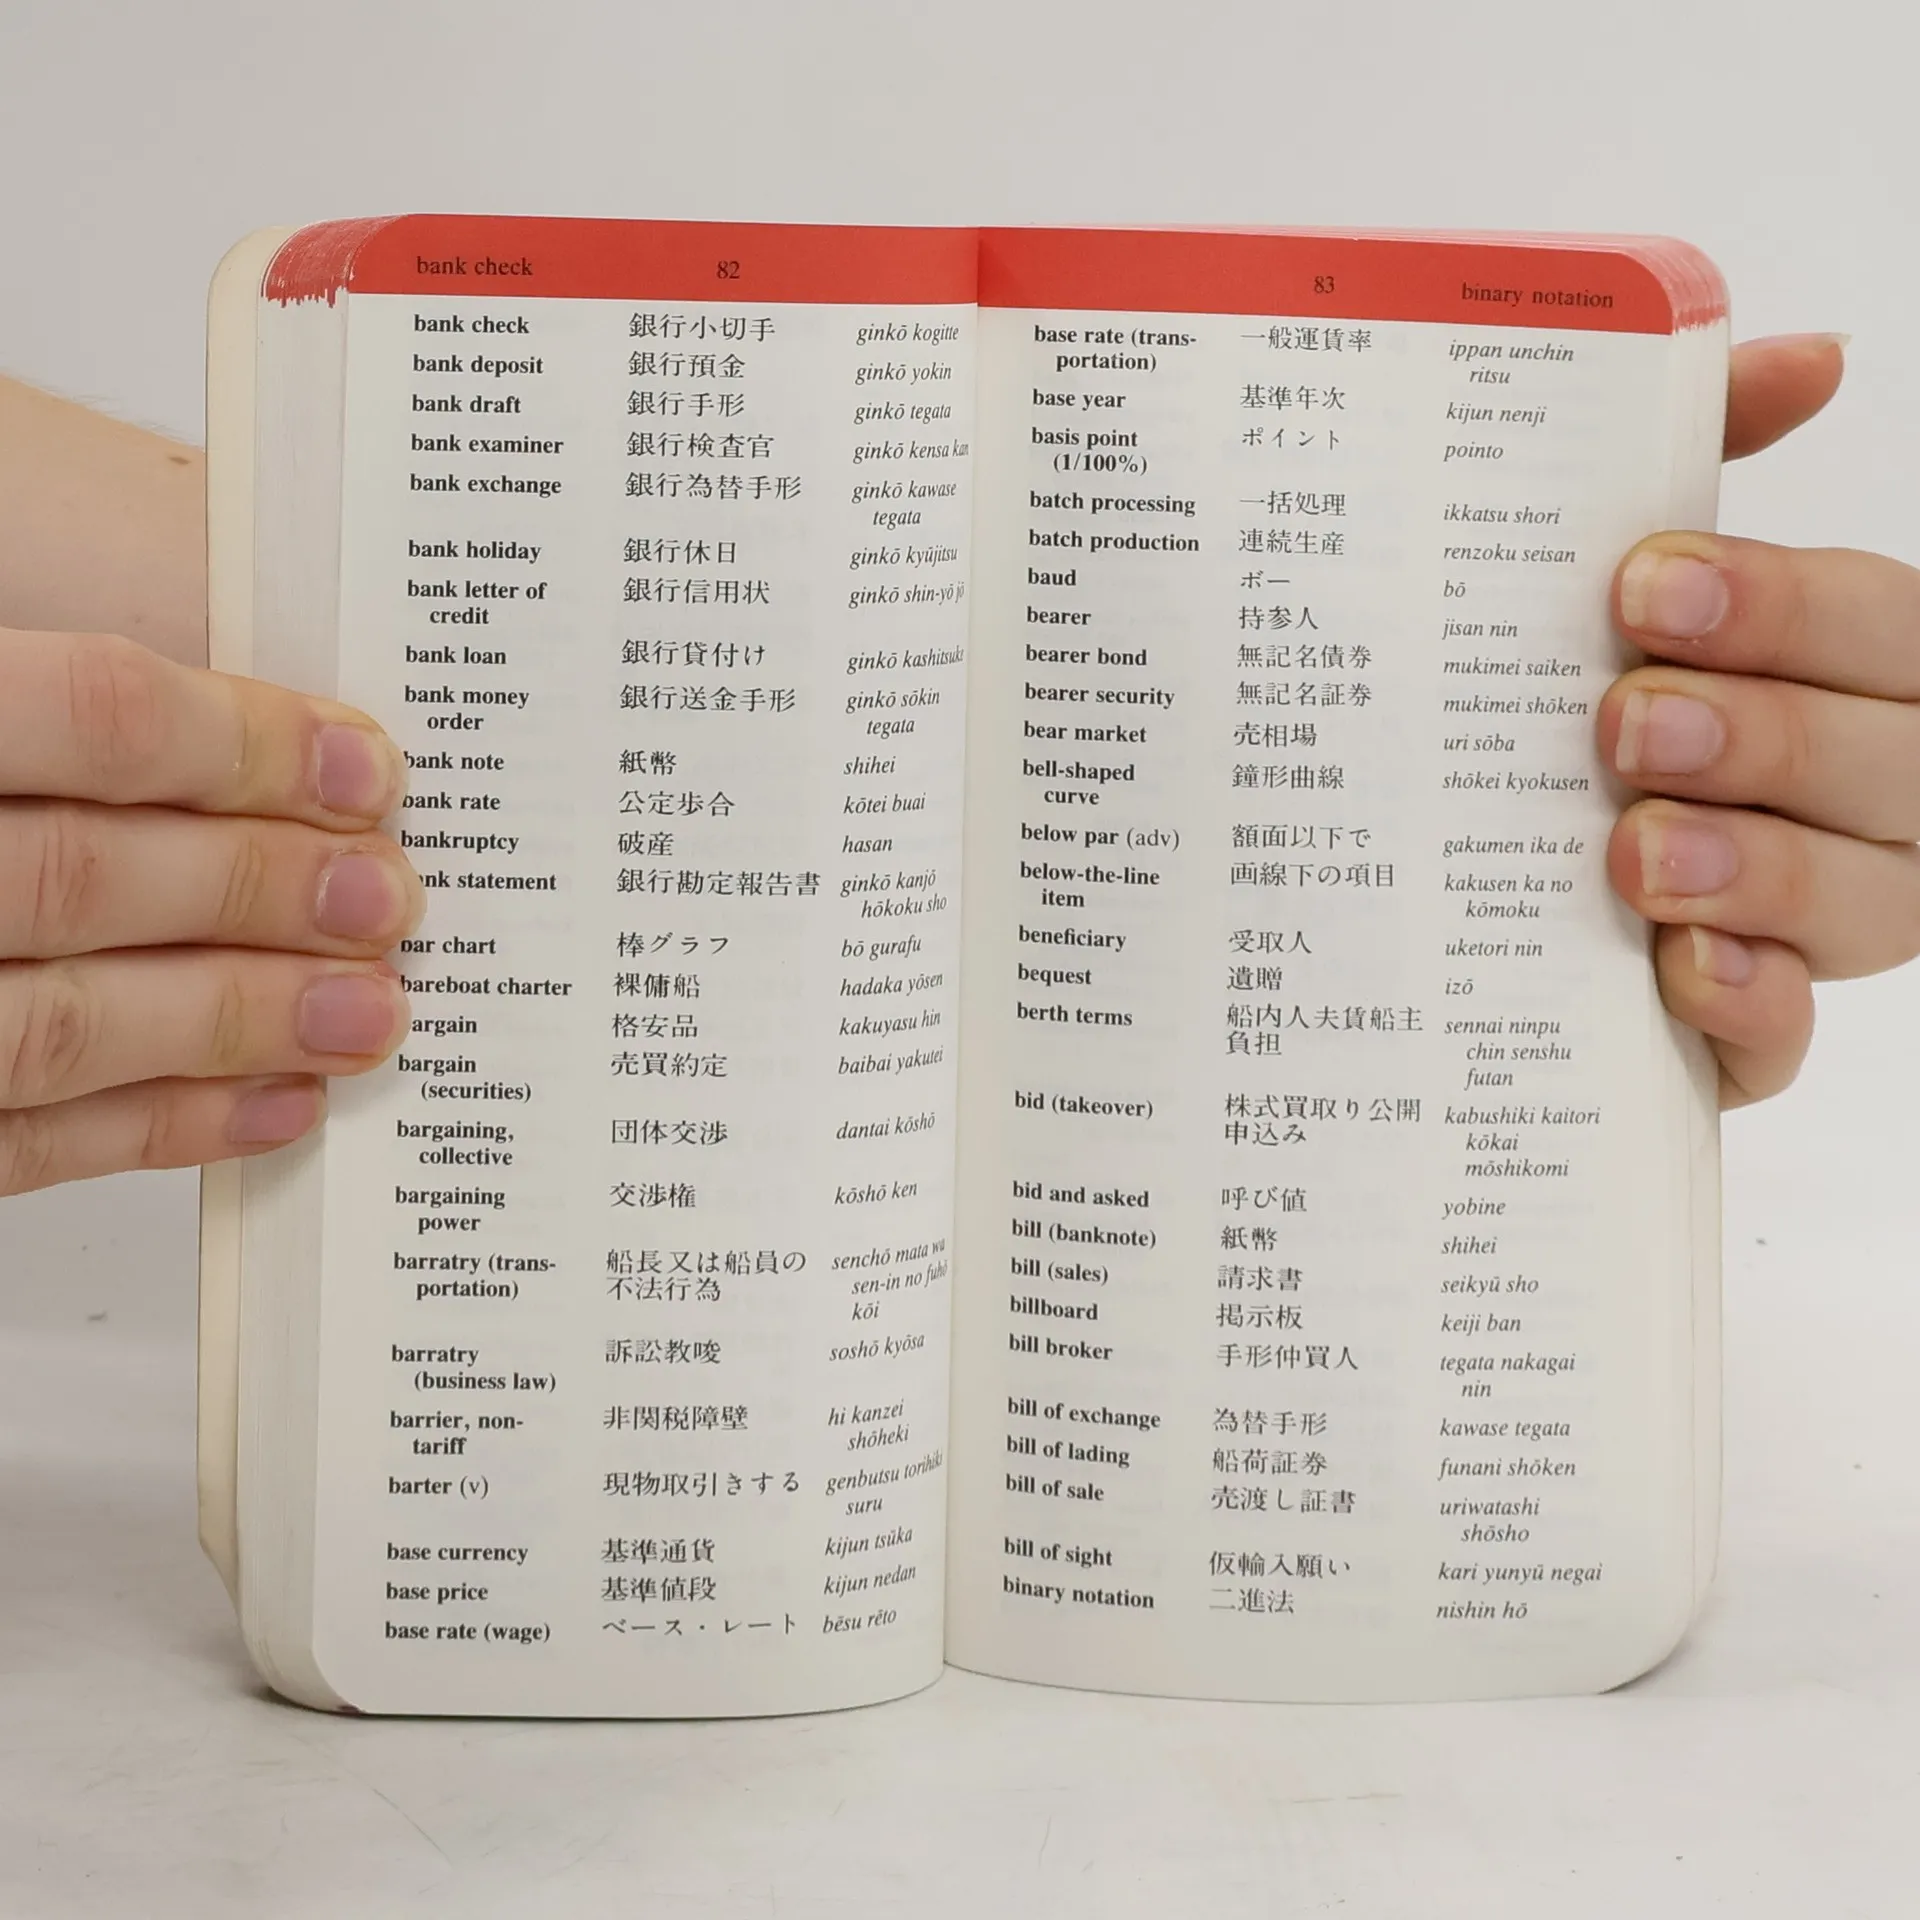 bank check 82
bank check 銀行小切手 ginkō kogitte
bank deposit 銀行預金 ginkō yokin
bank draft 銀行手形 ginkō tegata
bank examiner 銀行検査官 ginkō kensa kan
bank exchange 銀行為替手形 ginkō kawase
tegata
bank holiday 銀行休日 ginkō kyūjitsu
bank letter of 銀行信用状 ginkō shin-yō jō
credit
bank loan 銀行貸付け ginkō kashitsuke
bank money 銀行送金手形 ginkō sōkin
order tegata
bank note 紙幣 shihei
bank rate 公定歩合 kōtei buai
bankruptcy 破産 hasan
bank statement 銀行勘定報告書 ginkō kanjō
hōkoku sho
bar chart 棒グラフ bō gurafu
bareboat charter 裸傭船 hadaka yōsen
argain 格安品 kakuyasu hin
bargain 売買約定 baibai yakutei
(securities)
bargaining, 団体交渉 dantai kōshō
collective
bargaining 交渉権 kōshō ken
power
barratry (trans- 船長又は船員の senchō mata wa
portation) 不法行為 sen-in no fuhō
kōi
barratry 訴訟教唆 soshō kyōsa
(business law)
barrier, non- 非関税障壁 hi kanzei
tariff shōheki
barter (v) 現物取引きする genbutsu torihiki
suru
base currency 基準通貨 kijun tsūka
base price 基準値段 kijun nedan
base rate (wage) ベース・レート bēsu rēto
83 binary notation
base rate (trans- 一般運賃率 ippan unchin
portation) ritsu
base year 基準年次 kijun nenji
basis point ポイント pointo
(1/100%)
batch processing 一括処理 ikkatsu shori
batch production 連続生産 renzoku seisan
baud ボー bō
bearer 持参人 jisan nin
bearer bond 無記名債券 mukimei saiken
bearer security 無記名証券 mukimei shōken
bear market 売相場 uri sōba
bell-shaped 鐘形曲線 shōkei kyokusen
curve
below par (adv) 額面以下で gakumen ika de
below-the-line 画線下の項目 kakusen ka no
item kōmoku
beneficiary 受取人 uketori nin
bequest 遺贈 izō
berth terms 船内人夫賃船主 sennai ninpu
負担 chin senshu
futan
bid (takeover) 株式買取り公開 kabushiki kaitori
申込み kōkai
mōshikomi
bid and asked 呼び値 yobine
bill (banknote) 紙幣 shihei
bill (sales) 請求書 seikyū sho
billboard 掲示板 keiji ban
bill broker 手形仲買人 tegata nakagai
nin
bill of exchange 為替手形 kawase tegata
bill of lading 船荷証券 funani shōken
bill of sale 売渡し証書 uriwatashi
shōsho
bill of sight 仮輸入願い kari yunyū negai
binary notation 二進法 nishin hō